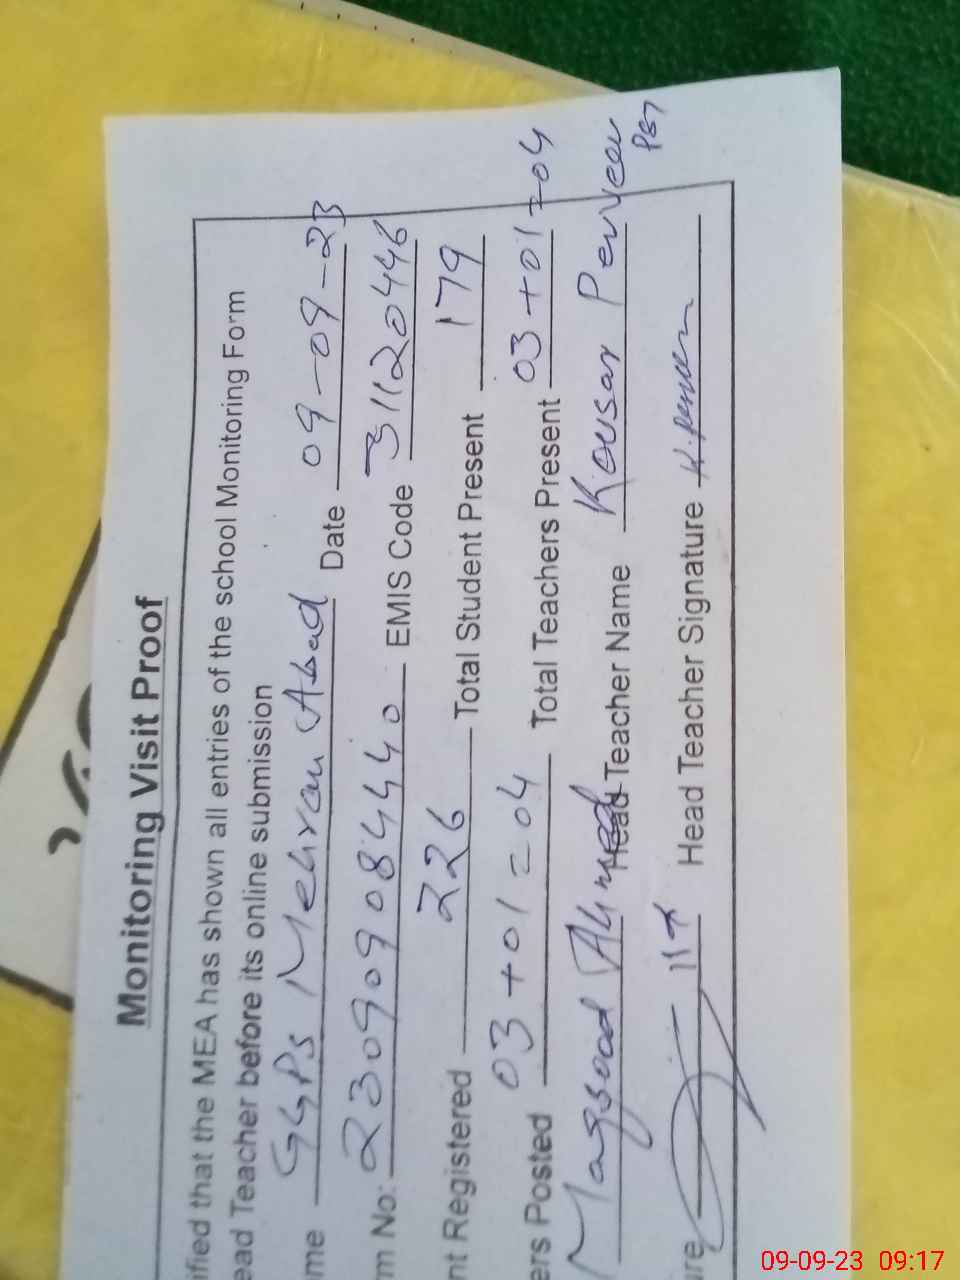 Monitoring Visit Proof
ified that the MEA has shown all entries of the school Monitoring Form
ead Teacher before its online submission
me GGPS Mehran Abad Date 09-09-23
m No: 2309090844 0 EMIS Code 31120446
nt Registered 226 Total Student Present 179
ers Posted 03+01=04 Total Teachers Present 03+01=04
Maqsood Ahmed Head Teacher Name Kousar Perveen PST
ure Head Teacher Signature K.Perveen
09-09-23 09:17